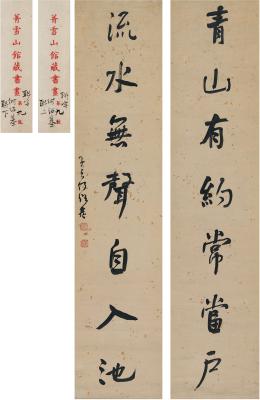 青山有約常當戶
流水無聲自入池
子貞何紹基
菁雪山館藏書畫
菁雪山館藏書畫